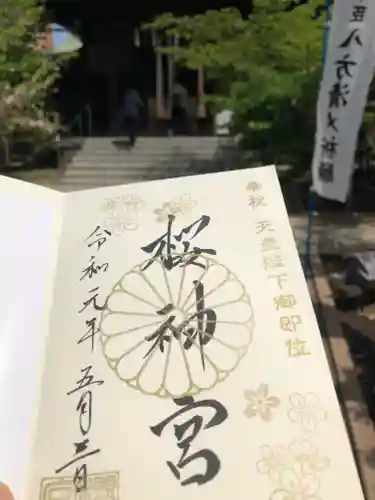 奉祝 天皇陛下御即位
桜神宮
令和元年五月三日
八方清メ祈願